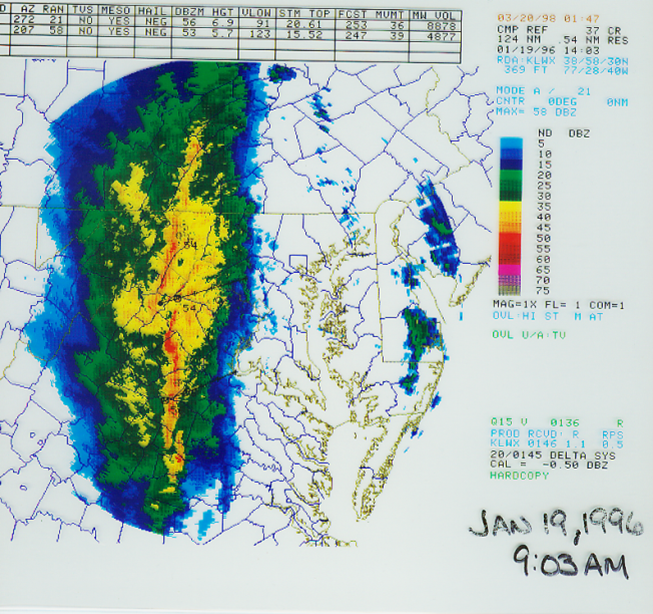 D AZ RAN TVS MESO HAIL DBZM HGT VLOW STM TOP FCST MVMT MW VOL
272 21 NO YES NEG 56 6.9 91 20.61 253 36 8878
207 58 NO YES NEG 53 5.7 123 15.52 247 39 4877
03/20/98 01:47
CMP REF 37 CR
124 NM .54 NM RES
01/19/96 14:03
RDA:KLWX 38/58/30N
369 FT 77/28/40W
MODE A / 21
CNTR 0DEG 0NM
MAX= 58 DBZ
ND DBZ
5
10
15
20
25
30
35
40
45
50
55
60
65
70
75
54
54
MAG=1X FL= 1 COM=1
OVL:HI ST M AT
OVL U/A:TV
Q15 V 0136 R
PROD RCVD: R RPS
KLWX 0146 1.1 0.5
20/0145 DELTA SYS
CAL = -0.50 DBZ
HARDCOPY
JAN 19, 1996
9:03 AM